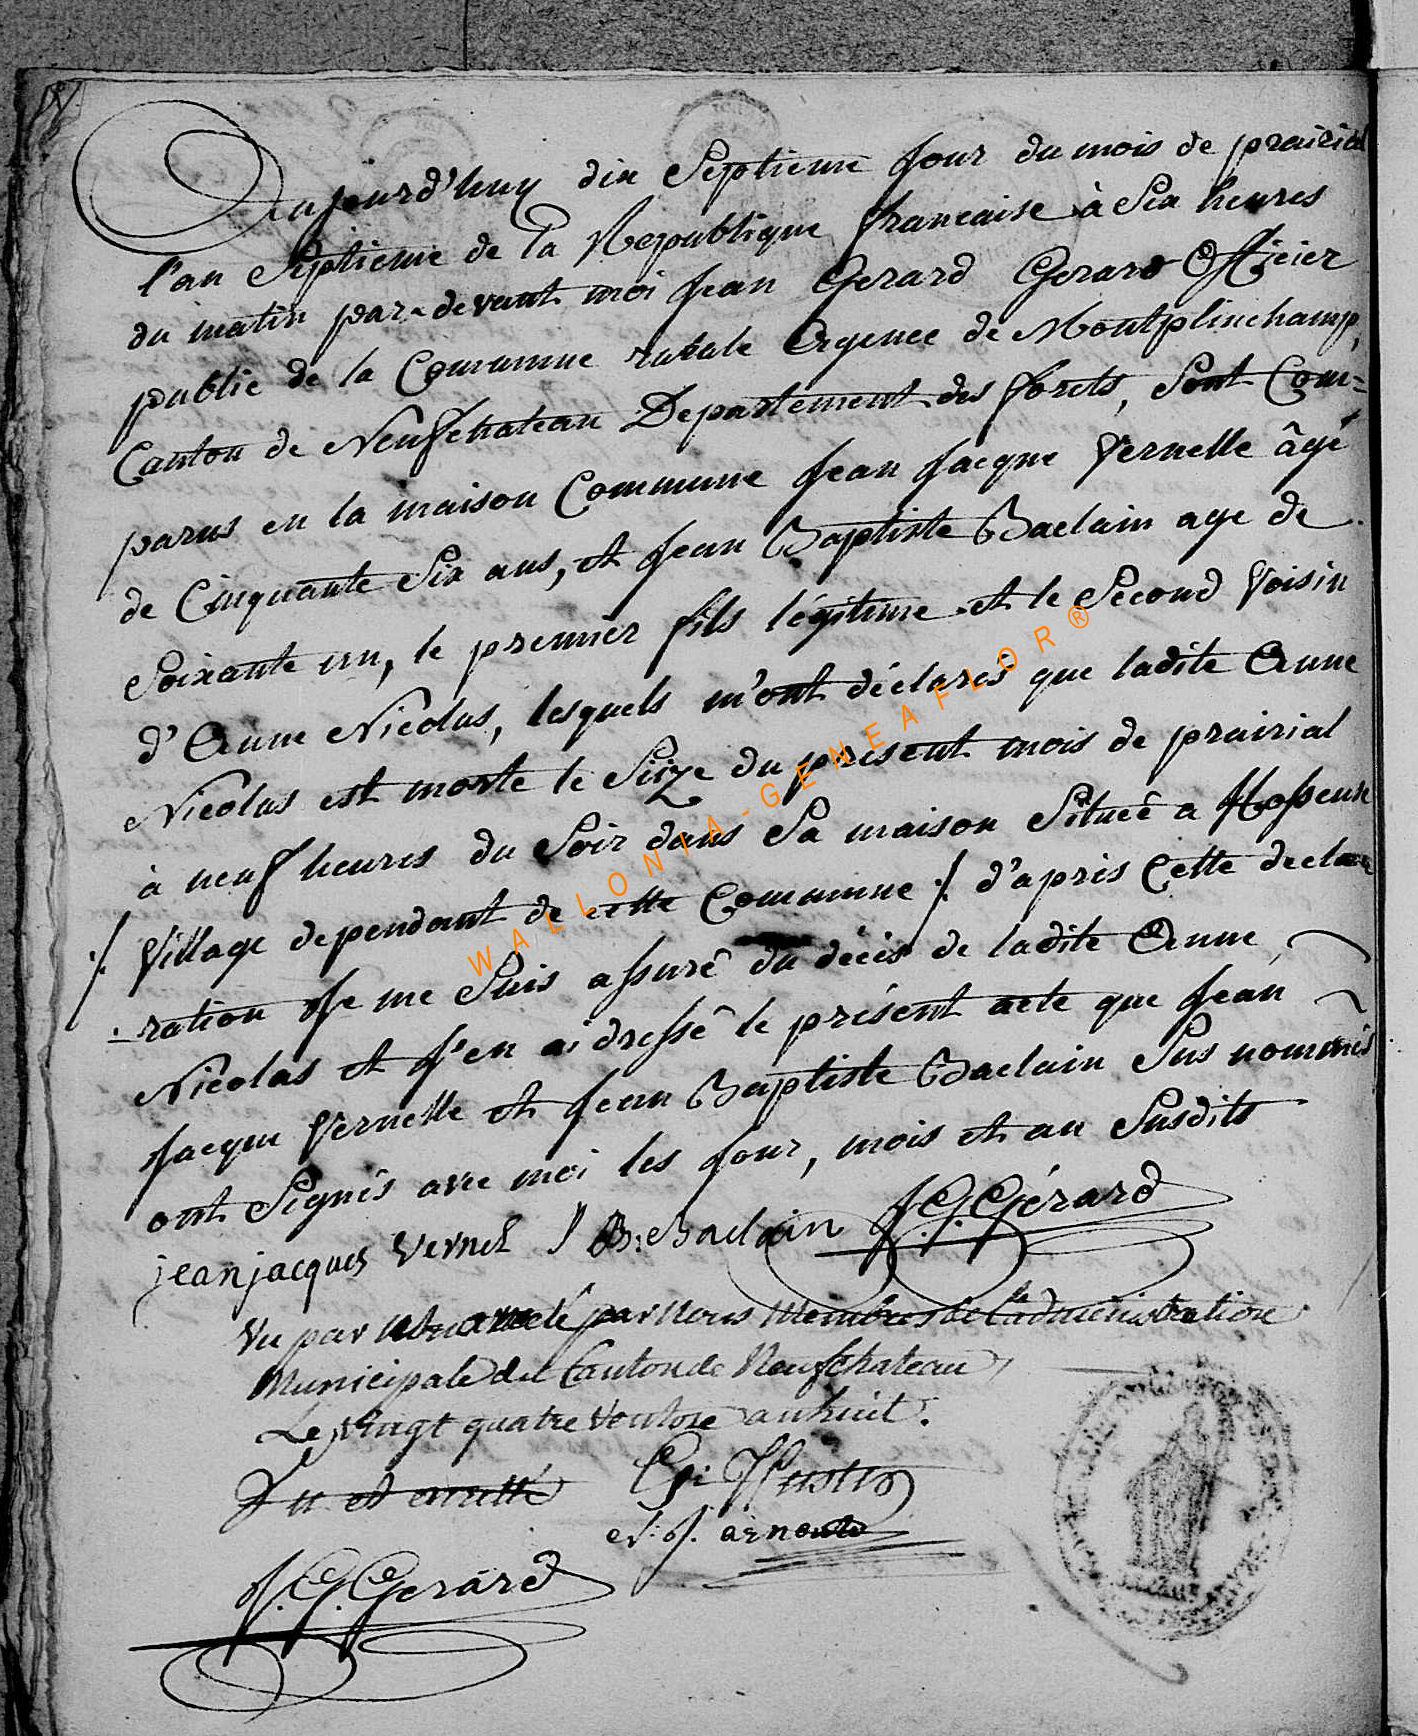 Aujourd'huy dix Septieme jour du mois de prairial
l'an Septieme de la Republique francaise à Six heures
du matin par-devant moi Jean Gerard Gerard Officier
public de la Commune rurale Agence de Montplinchamp,
Canton de Neufchateau Departement des forets, Sont Com=
parus en la maison Commune Jean Jacque Vernelle âgé
de Cinquante Six ans, et Jean Baptiste Baclain age de
Soixante un, le premier fils légitime et le Second Voisin
d'Anne Nicolas, lesquels m'ont déclarés que ladite Anne
Nicolas est morte le Seize du présent mois de prairial
à neuf heures du Soir dans Sa maison Située a Hosseuse
./. Village dependant de cette Commune ./. d'après Cette decla
-ration Je me Suis assuré du décès de ladite Anne
Nicolas et J'en ai dressé le présent acte que Jean
Jacque Vernelle et Jean Baptiste Baclain Sus nommés
ont Signés avec moi les Jour, mois et an Susdits
jean jacques Vernel J B: Baclain J. G. Gérard
Vu par Nous Membres de l'administration
Municipale du Canton de Neufchateau
Le Vingt quatre Ventose an huit.
Vu et arretté
J. arnould
J. G. Gerard
WALLONIA-GENEAFLOR®